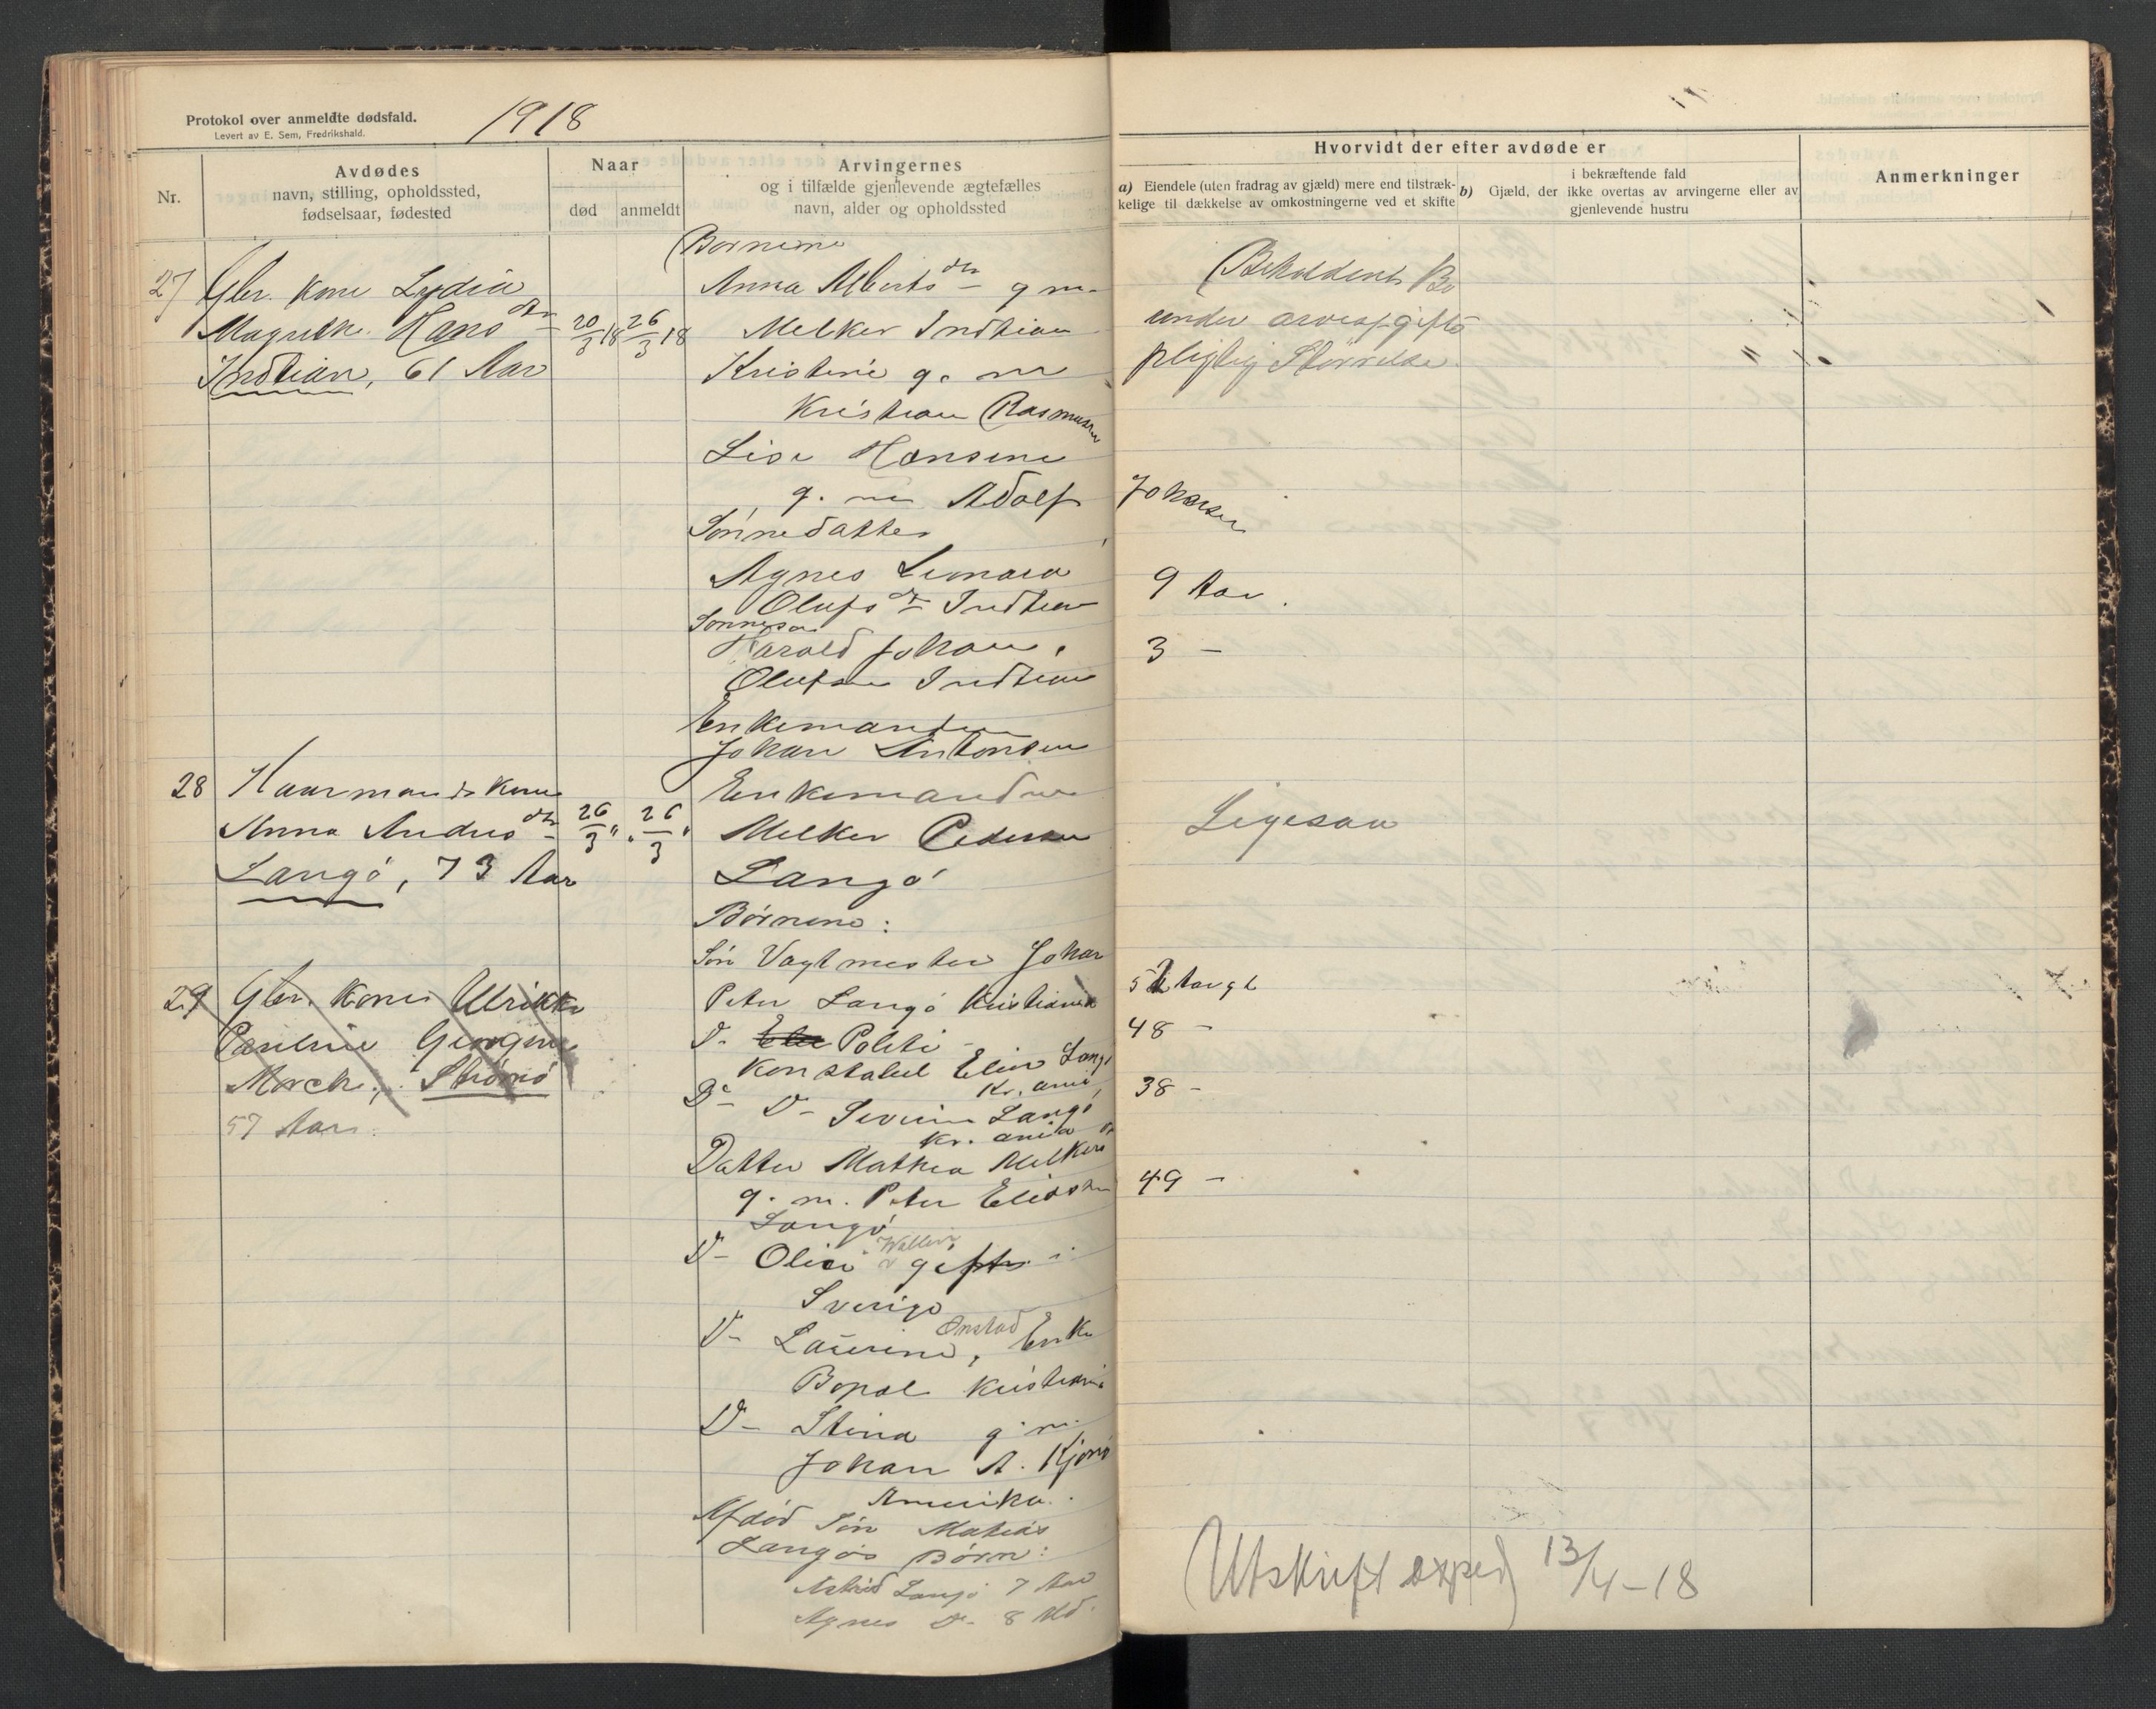 Protokol over anmeldte dødsfald.
Levert av E. Sem, Fredrikshald.
1918
Nr.
Avdødes
navn, stilling, opholdssted,
fødselsaar, fødested
Naar
død
anmeldt
Arvingernes
og i tilfælde gjenlevende ægtefælles
navn, alder og opholdssted
Hvorvidt der efter avdøde er
a) Eiendele (uten fradrag av gjæld) mere end tilstræk-
kelige til dækkelse av omkostningerne ved et skifte
i bekræftende fald
b) Gjæld, der ikke overtas av arvingerne eller av
gjenlevende hustru
Anmerkninger
27 Gbr. kone Lydia
Hans dtr
Indtian, 61 Aar
20/3 18 26/3 18
Børnene
Anna Alberts dtr g m
Melker Indtian
Kristine g. m
Kristian Rasmussen
Lise Hansine
g. m Adolf Johansen
Sønnedatter
Agnes Leonara
Olufs dtr Indtian 9 Aar.
Sønnesøn
Harald Johan 3 -
Olufsen Indtian
Enkemanden
Johan Antonsen
Beholdent Bo
under arveafgifts
pligtig Størrelse.
28 Haarmands kone
Anna Andreas dtr
Langö, 73 Aar
26/3 " 26/3 "
Enkemanden
Melker Pedersen
Langö
Börnene:
Sön Vagtmester Johan
Peter Langö Kristiania 52 Aar gl
D. Politi - 48 -
Konstabel Elias Langö
Kr. ania
Do - D - Severin Langö 38 -
Kr. ania
Datter Mathea Melkers dtr
g. m. Peter Eliassen 49 -
Langö
D - Olise Wallin gift i
Sverige
D - Laurine Onstad, Enke
Bopæl Kristiania
D - Stina g. m.
Johan A. Kjønö
Amerika.
Afdöd Sön Matias
Langös Börn:
Astrid Langö 7 Aar
Agnes D - 8 Md.
Ligesaa
29 Gbr. kone Ulrikke
Pauline Georgine
Mørch, Strömö
57 Aar.
(Utskrift exped) 13/4-18